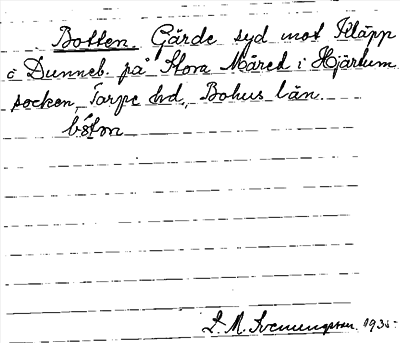 Botten. Gärde syd mot Kläpp
å Dunneb. på Stora Märed i Hjärtum
socken, Torpe hd., Bohus län.
båton
L. M. Svenungsson. 1935.